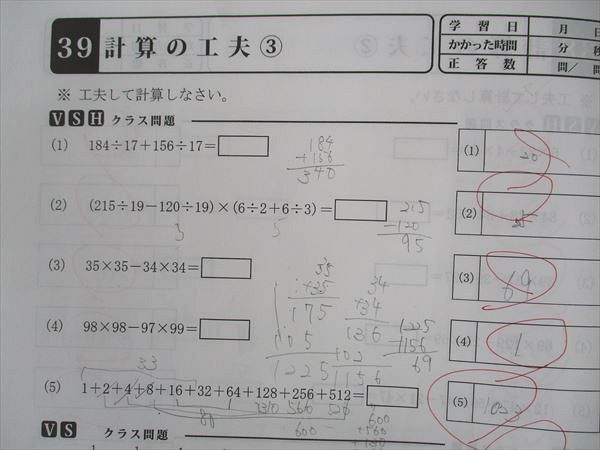 39 計算の工夫③
学習日 月 日
かかった時間 分 秒
正答数 問/ 問
※ 工夫して計算しなさい。
V S H クラス問題
(1) 184÷17+156÷17=
184
+156
340
(1) 20
(2) (215÷19−120÷19)×(6÷2+6÷3)=
3 5
215
−120
95
(2) 25
(3) 35×35−34×34=
35
×35
175
105
1225
34
×34
136
102
1156
(3) 69
(4) 98×98−97×99=
1225
−1156
69
(4) 1
33
(5) 1+2+4+8+16+32+64+128+256+512=
600
600
+560
(5) 1023
V S クラス問題